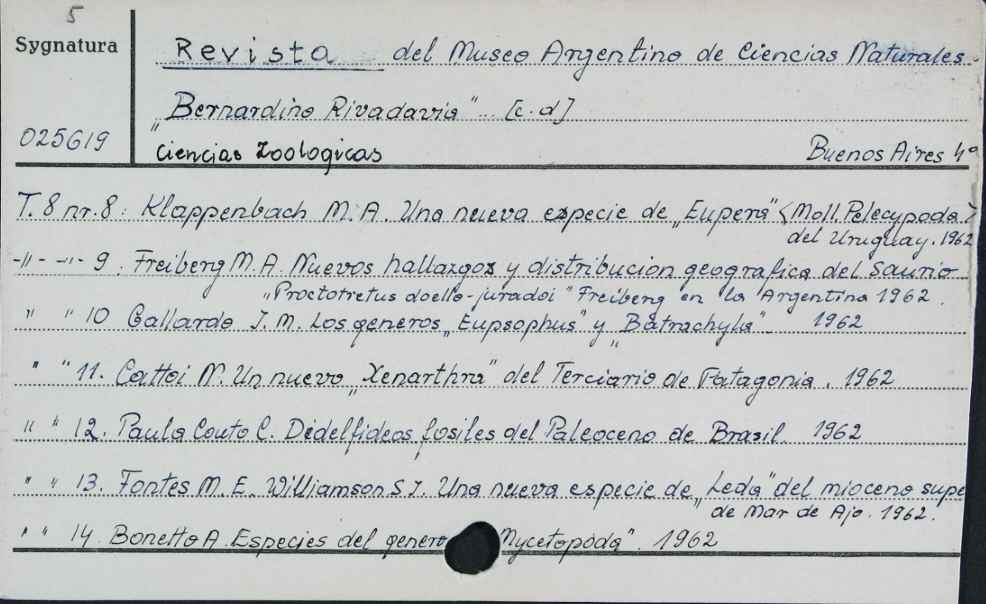 5
Sygnatura
Revista del Museo Argentino de Ciencias Naturales.
"Bernardino Rivadavia" [c.d]
025619
Ciencias Zoologicas Buenos Aires 4°
T. 8 nr. 8: Klappenbach M. A. Una nueva especie de „Eupera" <Moll. Pelecypoda>
del Uruguay. 1962
-"- -"- 9. Freiberg M. A. Nuevos hallazgos y distribucion geografica del Saurio
„Proctotretus doello-juradoi" Freiberg en la Argentina 1962.
" " 10 Gallardo J. M. Los generos „Eupsophus" y „Batrachyla" 1962
" " 11. Cattoi N. Un nuevo „Xenarthra" del Terciario de Patagonia. 1962
" " 12. Paula Couto C. Didelfideos fosiles del Paleoceno de Brasil. 1962
" " 13. Fontes M. E. Williamson S. J. Una nueva especie de „Leda" del mioceno supe
de Mar de Ajo. 1962.
" " 14. Bonetto A. Especies del genero Mycetopoda". 1962